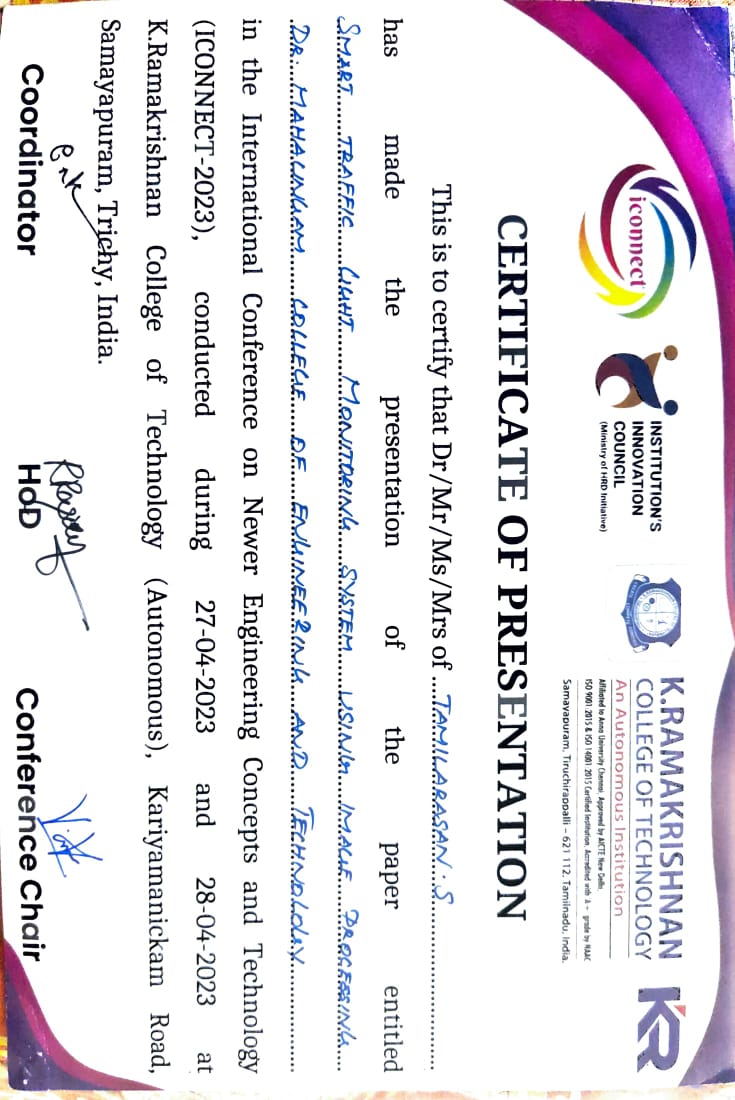 iconnect
INSTITUTION'S
INNOVATION
COUNCIL
(Ministry of HRD Initiative)
K.RAMAKRISHNAN
COLLEGE OF TECHNOLOGY
An Autonomous Institution
Affiliated to Anna University Chennai, Approved by AICTE New Delhi,
ISO 9001:2015 & ISO 14001:2015 Certified Institution, Accredited with 'A+' grade by NAAC
Samayapuram, Tiruchirappalli – 621 112, Tamilnadu, India.
KR
CERTIFICATE OF PRESENTATION
This is to certify that Dr/Mr/Ms/Mrs of ....TAMILARASAN.S
has made the presentation of the paper entitled
SMART TRAFFIC LIGHT MONITORING SYSTEM USING IMAGE PROCESSING
DR. MAHALINGAM COLLEGE OF ENGINEERING AND TECHNOLOGY
in the International Conference on Newer Engineering Concepts and Technology
(ICONNECT-2023), conducted during 27-04-2023 and 28-04-2023 at
K.Ramakrishnan College of Technology (Autonomous), Kariyamanickam Road,
Samayapuram, Trichy, India.
Coordinator
HoD
Conference Chair